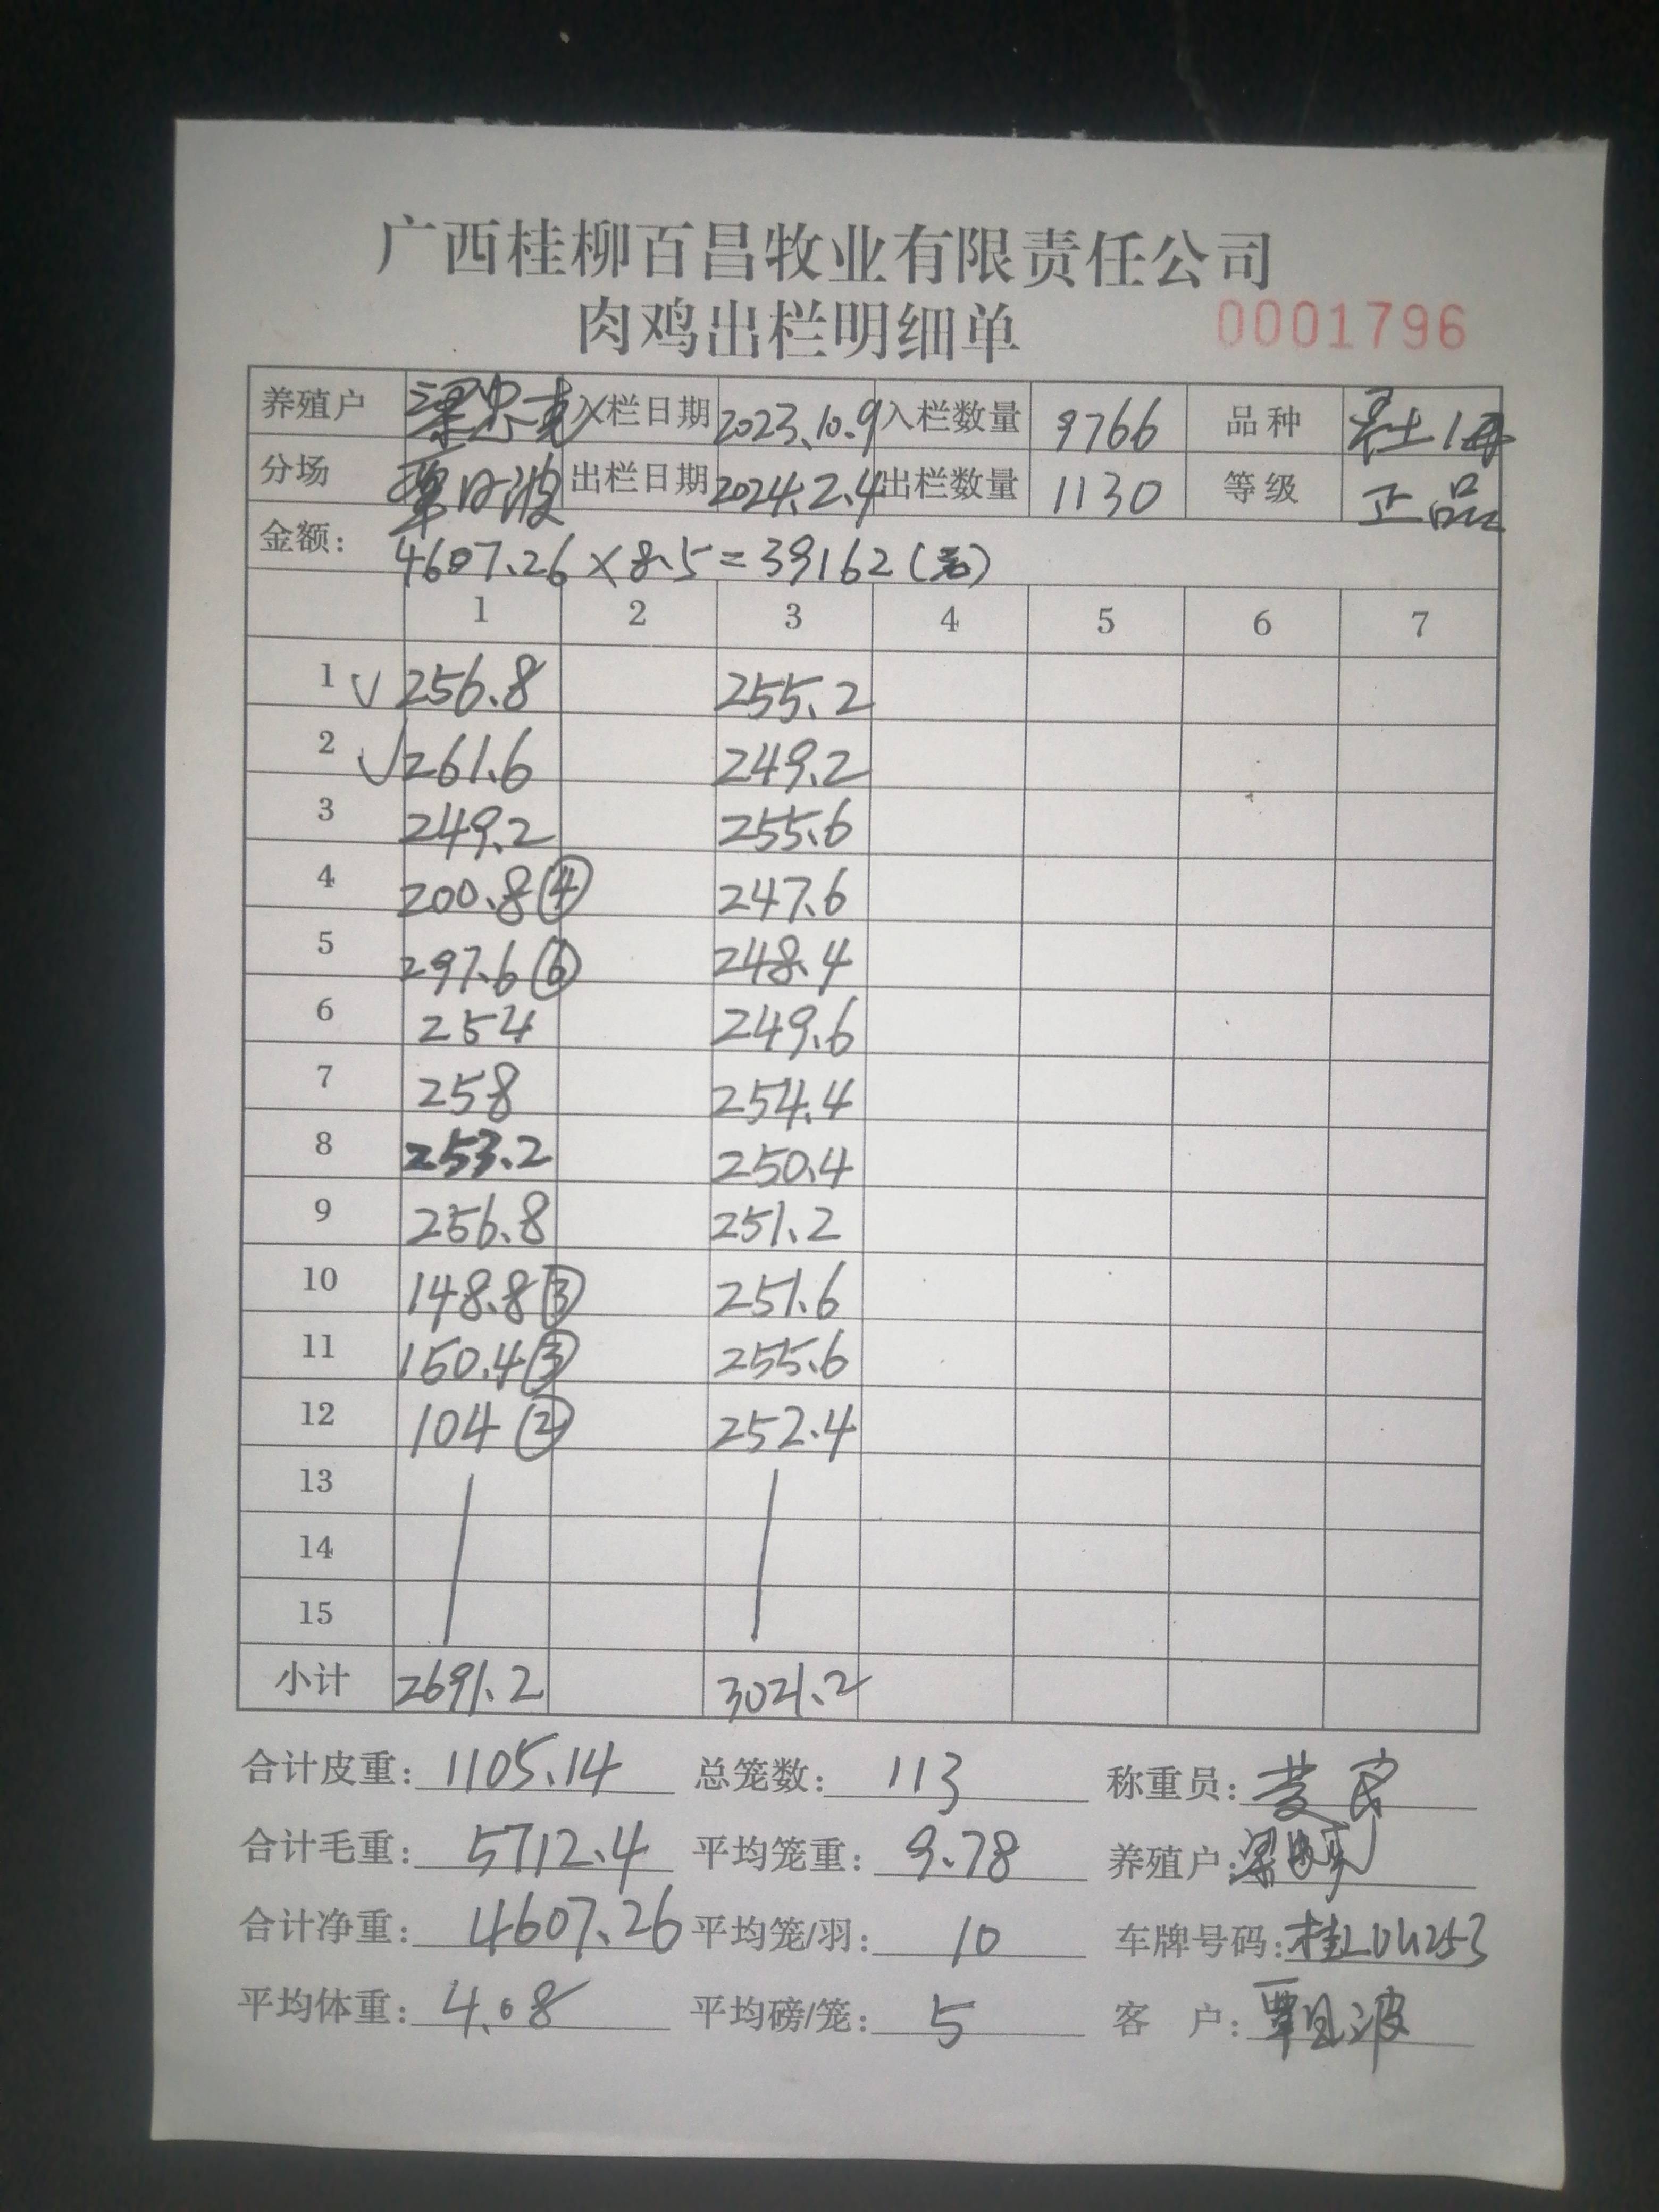 广西桂柳百昌牧业有限责任公司
肉鸡出栏明细单 0001796
养殖户 入栏日期 2023.10.9 入栏数量 9766 品种
分场 覃日波 出栏日期 2024.2.4 出栏数量 1130 等级 正品
金额: 4607.26×8.5=39162(元)
1 2 3 4 5 6 7
1 √ 256.8 255.2
2 √ 261.6 249.2
3 249.2 255.6
4 200.8④ 247.6
5 297.6⑥ 248.4
6 254 249.6
7 258 254.4
8 253.2 250.4
9 256.8 251.2
10 148.8③ 251.6
11 150.4③ 255.6
12 104② 252.4
13
14
15
小计 2691.2 3021.2
合计皮重: 1105.14 总笼数: 113 称重员:
合计毛重: 5712.4 平均笼重: 9.78 养殖户:
合计净重: 4607.26 平均笼/羽: 10 车牌号码:
平均体重: 4.08 平均磅/笼: 5 客 户: 覃日波